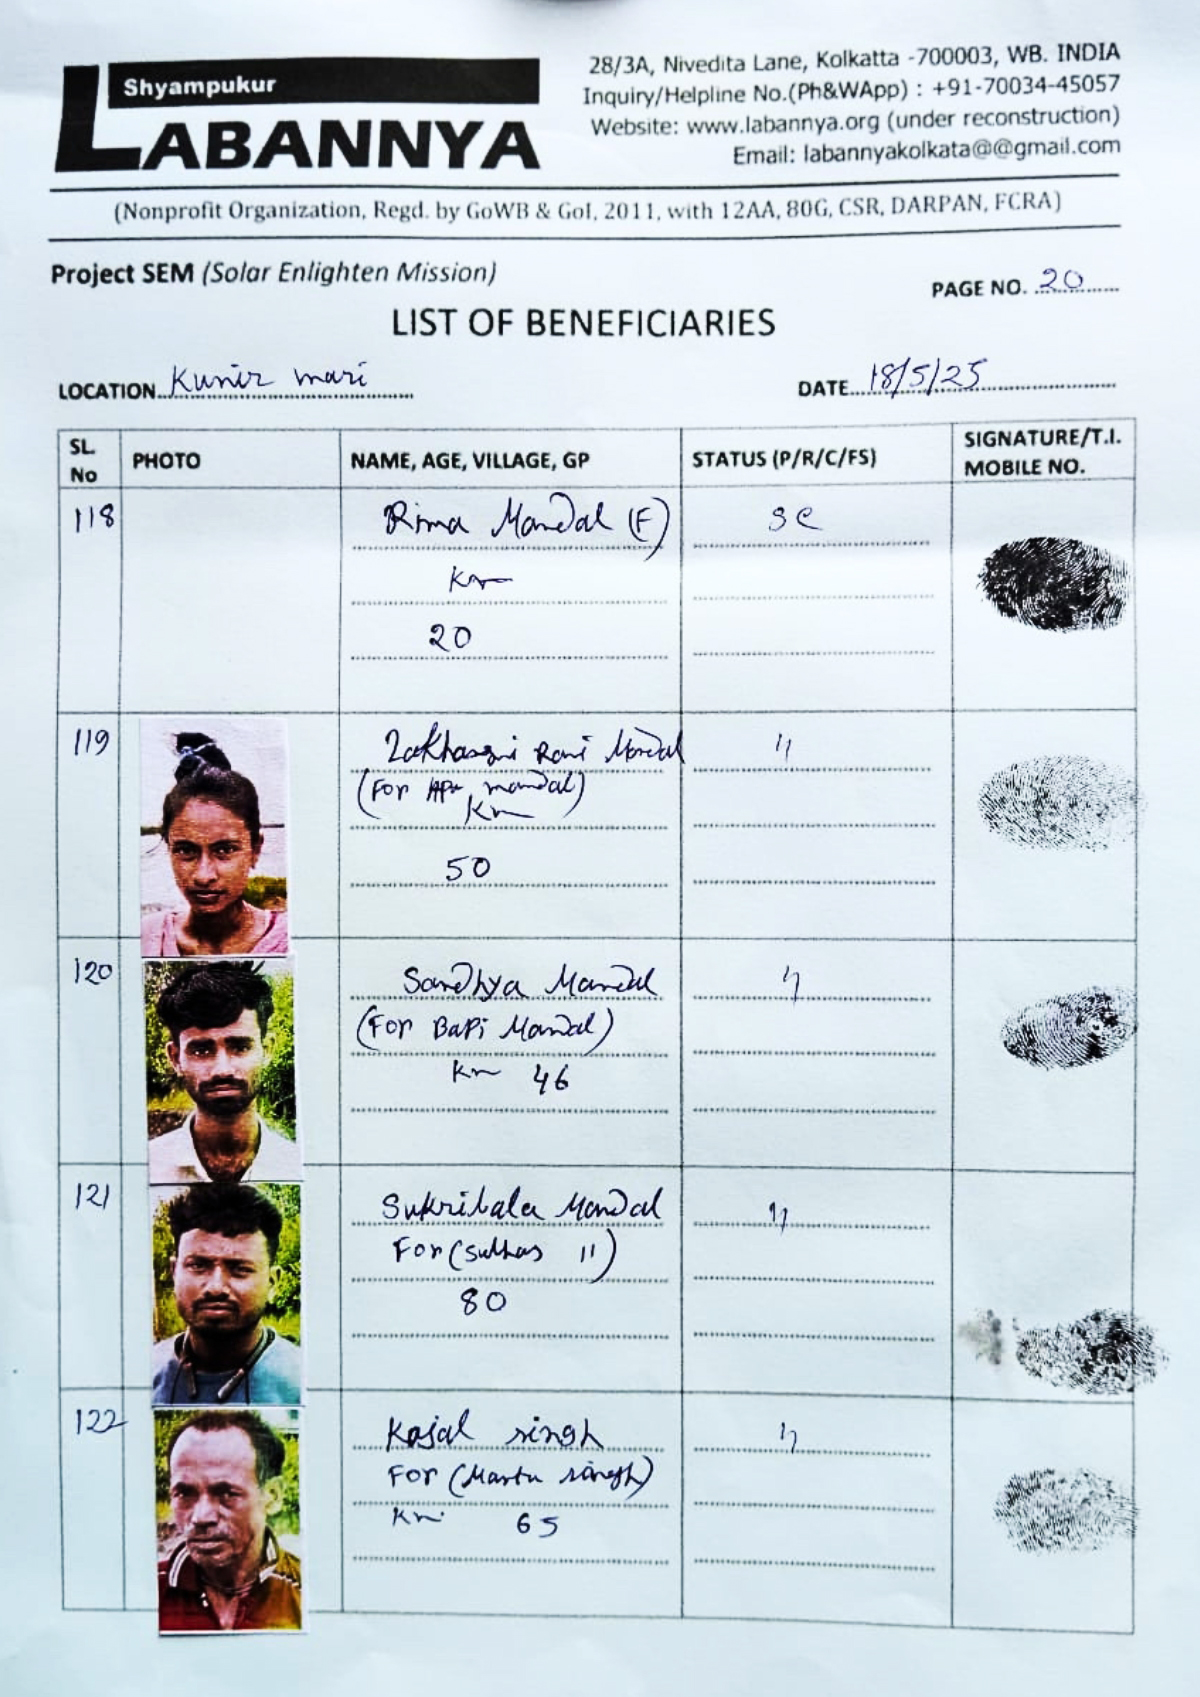 Shyampukur
LABANNYA
28/3A, Nivedita Lane, Kolkatta -700003, WB. INDIA
Inquiry/Helpline No.(Ph&WApp) : +91-70034-45057
Website: www.labannya.org (under reconstruction)
Email: labannyakolkata@@gmail.com
(Nonprofit Organization, Regd. by GoWB & GoI, 2011, with 12AA, 80G, CSR, DARPAN, FCRA)
Project SEM (Solar Enlighten Mission)
PAGE NO. 20
LIST OF BENEFICIARIES
LOCATION Kumir mari
DATE 18/5/25
SL. No PHOTO NAME, AGE, VILLAGE, GP STATUS (P/R/C/FS) SIGNATURE/T.I. MOBILE NO.
118 Rima Mandal (F) SC
Km
20
119 Rani Mondal "
(For mandal)
Km
50
120 Sandhya Mandal "
(For Bapi Mandal)
Km 46
121 Sukribala Mondal "
For (Suthas 11)
80
122 Kajal singh "
For (Mantu singh)
Km 65